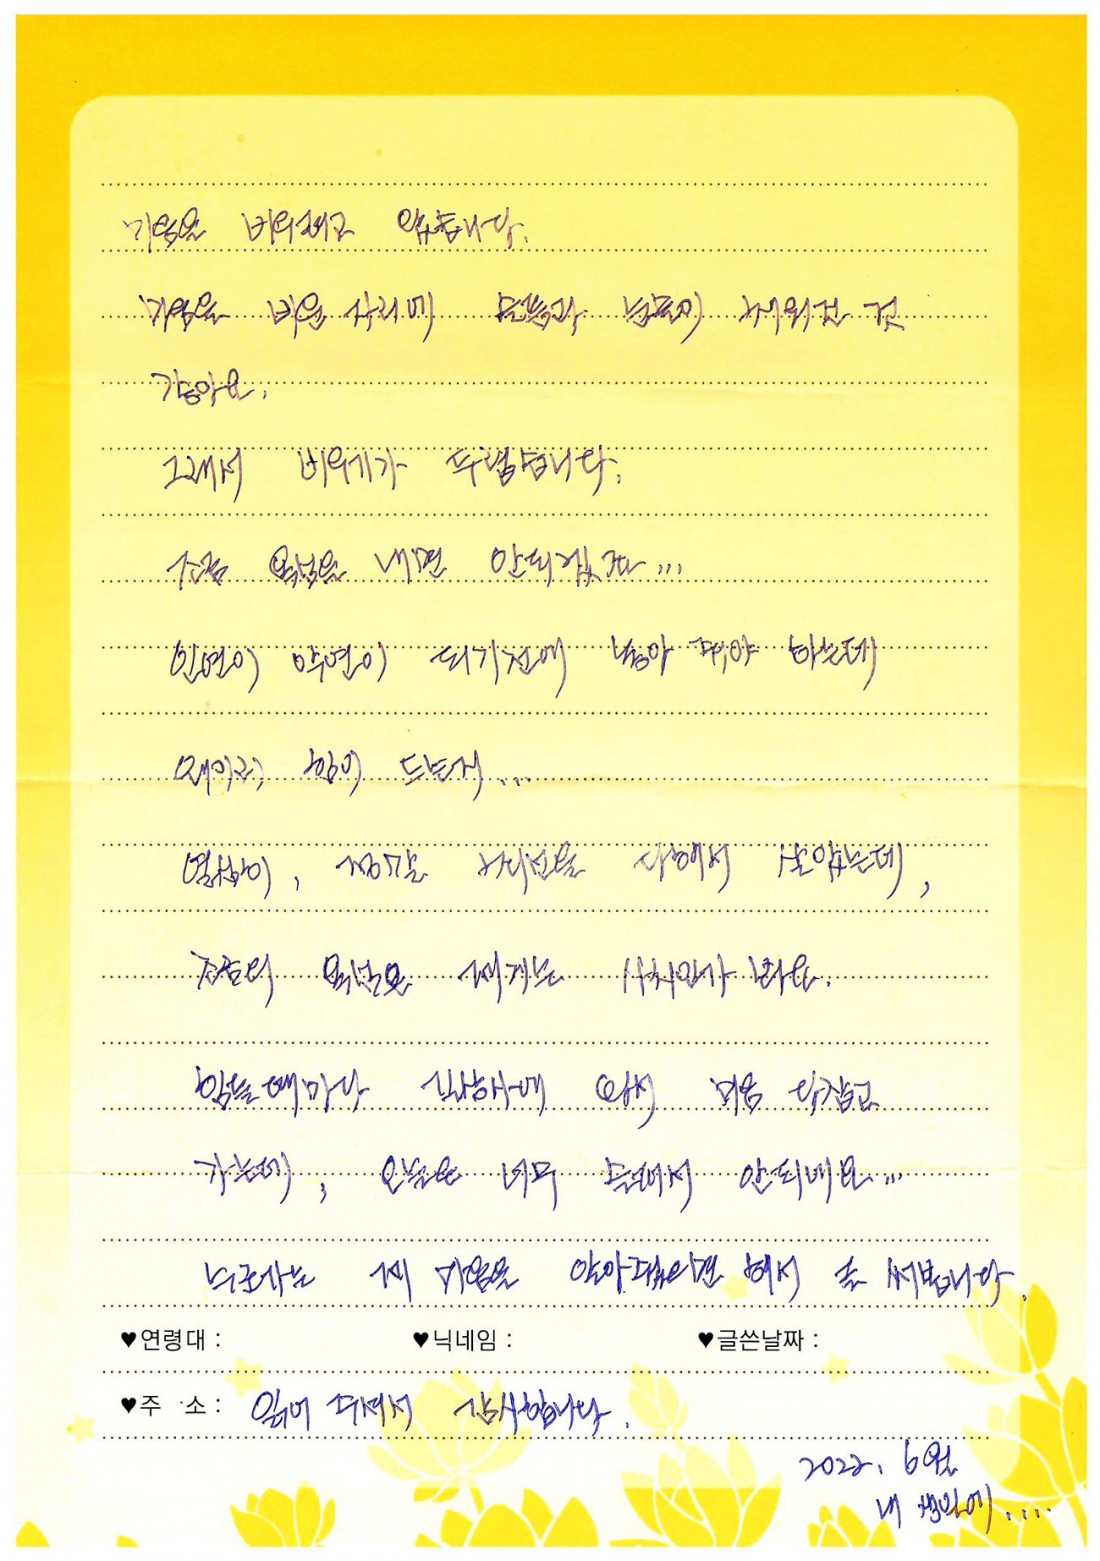 마음을 비우려고 왔습니다.
마음을 비울 자리에 슬픔과 눈물이 채워진 것
같아요.
그래서 비우기가 두렵습니다.
조금 욕심을 내면 안되겠죠...
인연이 악연이 되기전에 놓아 줘야 하는데
왜이리 힘이 드는지...
열심히, 정말 최선을 다해서 살았는데,
조금의 욕심은 제게는 사치인가 봐요.
힘들때마다 길상사에 와서 마음 다잡고
가는데, 오늘은 너무 슬퍼서 안되네요...
누군가는 제 마음을 알아줬으면 해서 글 써봅니다.
♥연령대 : ♥닉네임 : ♥글쓴날짜 :
♥주 소 : 읽어 주셔서 감사합니다.
2022. 6월
내 생일에....